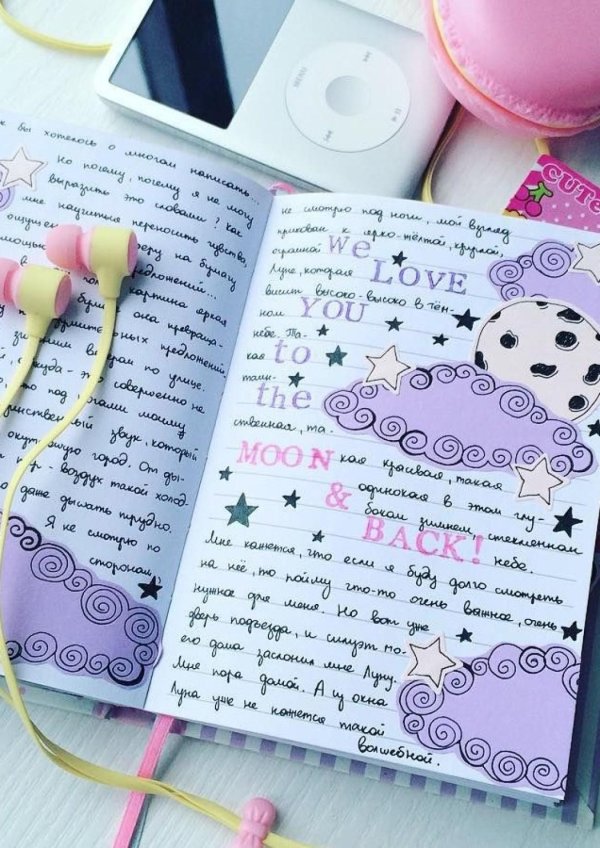 бы хотелось о многом написать...
Но почему, почему я не могу
выразить это словами? Как
мне научиться переносить чувства,
на бумагу
предложений...
картина яркая
она превраща-
предложений
по улице.
это совершенно не
под ногами моими
звук, который
город. От ды-
воздух такой холод
даже дышать трудно.
Я не смотрю по
сторонам,
не смотрю под ноги, мой взгляд
прикован к ярко-жёлтой, круглой,
огромной We
Луне, которая LOVE
висит высоко-высоко в тём-
ном YOU
небе. Та-
кая to
таин-
the
ственная, та-
MOON кая красивая, такая
одинокая в этом глу-
& боком зимнем, стеклянном
BACK! небе.
Мне кажется, что если я буду долго смотреть
на неё, то пойму что-то очень важное, очень
нужное для меня. Но вот уже
дверь подъезда, и силуэт мо-
его дома заслонил мне Луну.
Мне пора домой. А из окна
Луна уже не кажется такой
волшебной.
MENU
CUTE